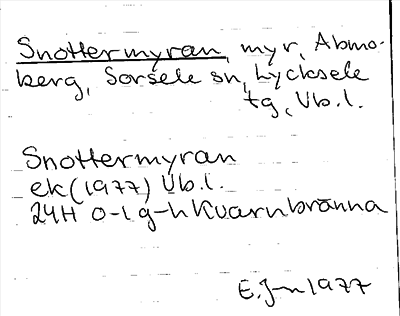 Snottermyran, myr, Abmo-
berg, Sorsele sn, Lycksele
tg, Vb.l.
Snottermyran
ek (1977) Vb.l.
24H 0-1 g-h Kvarnbränna
E.J-n 1977